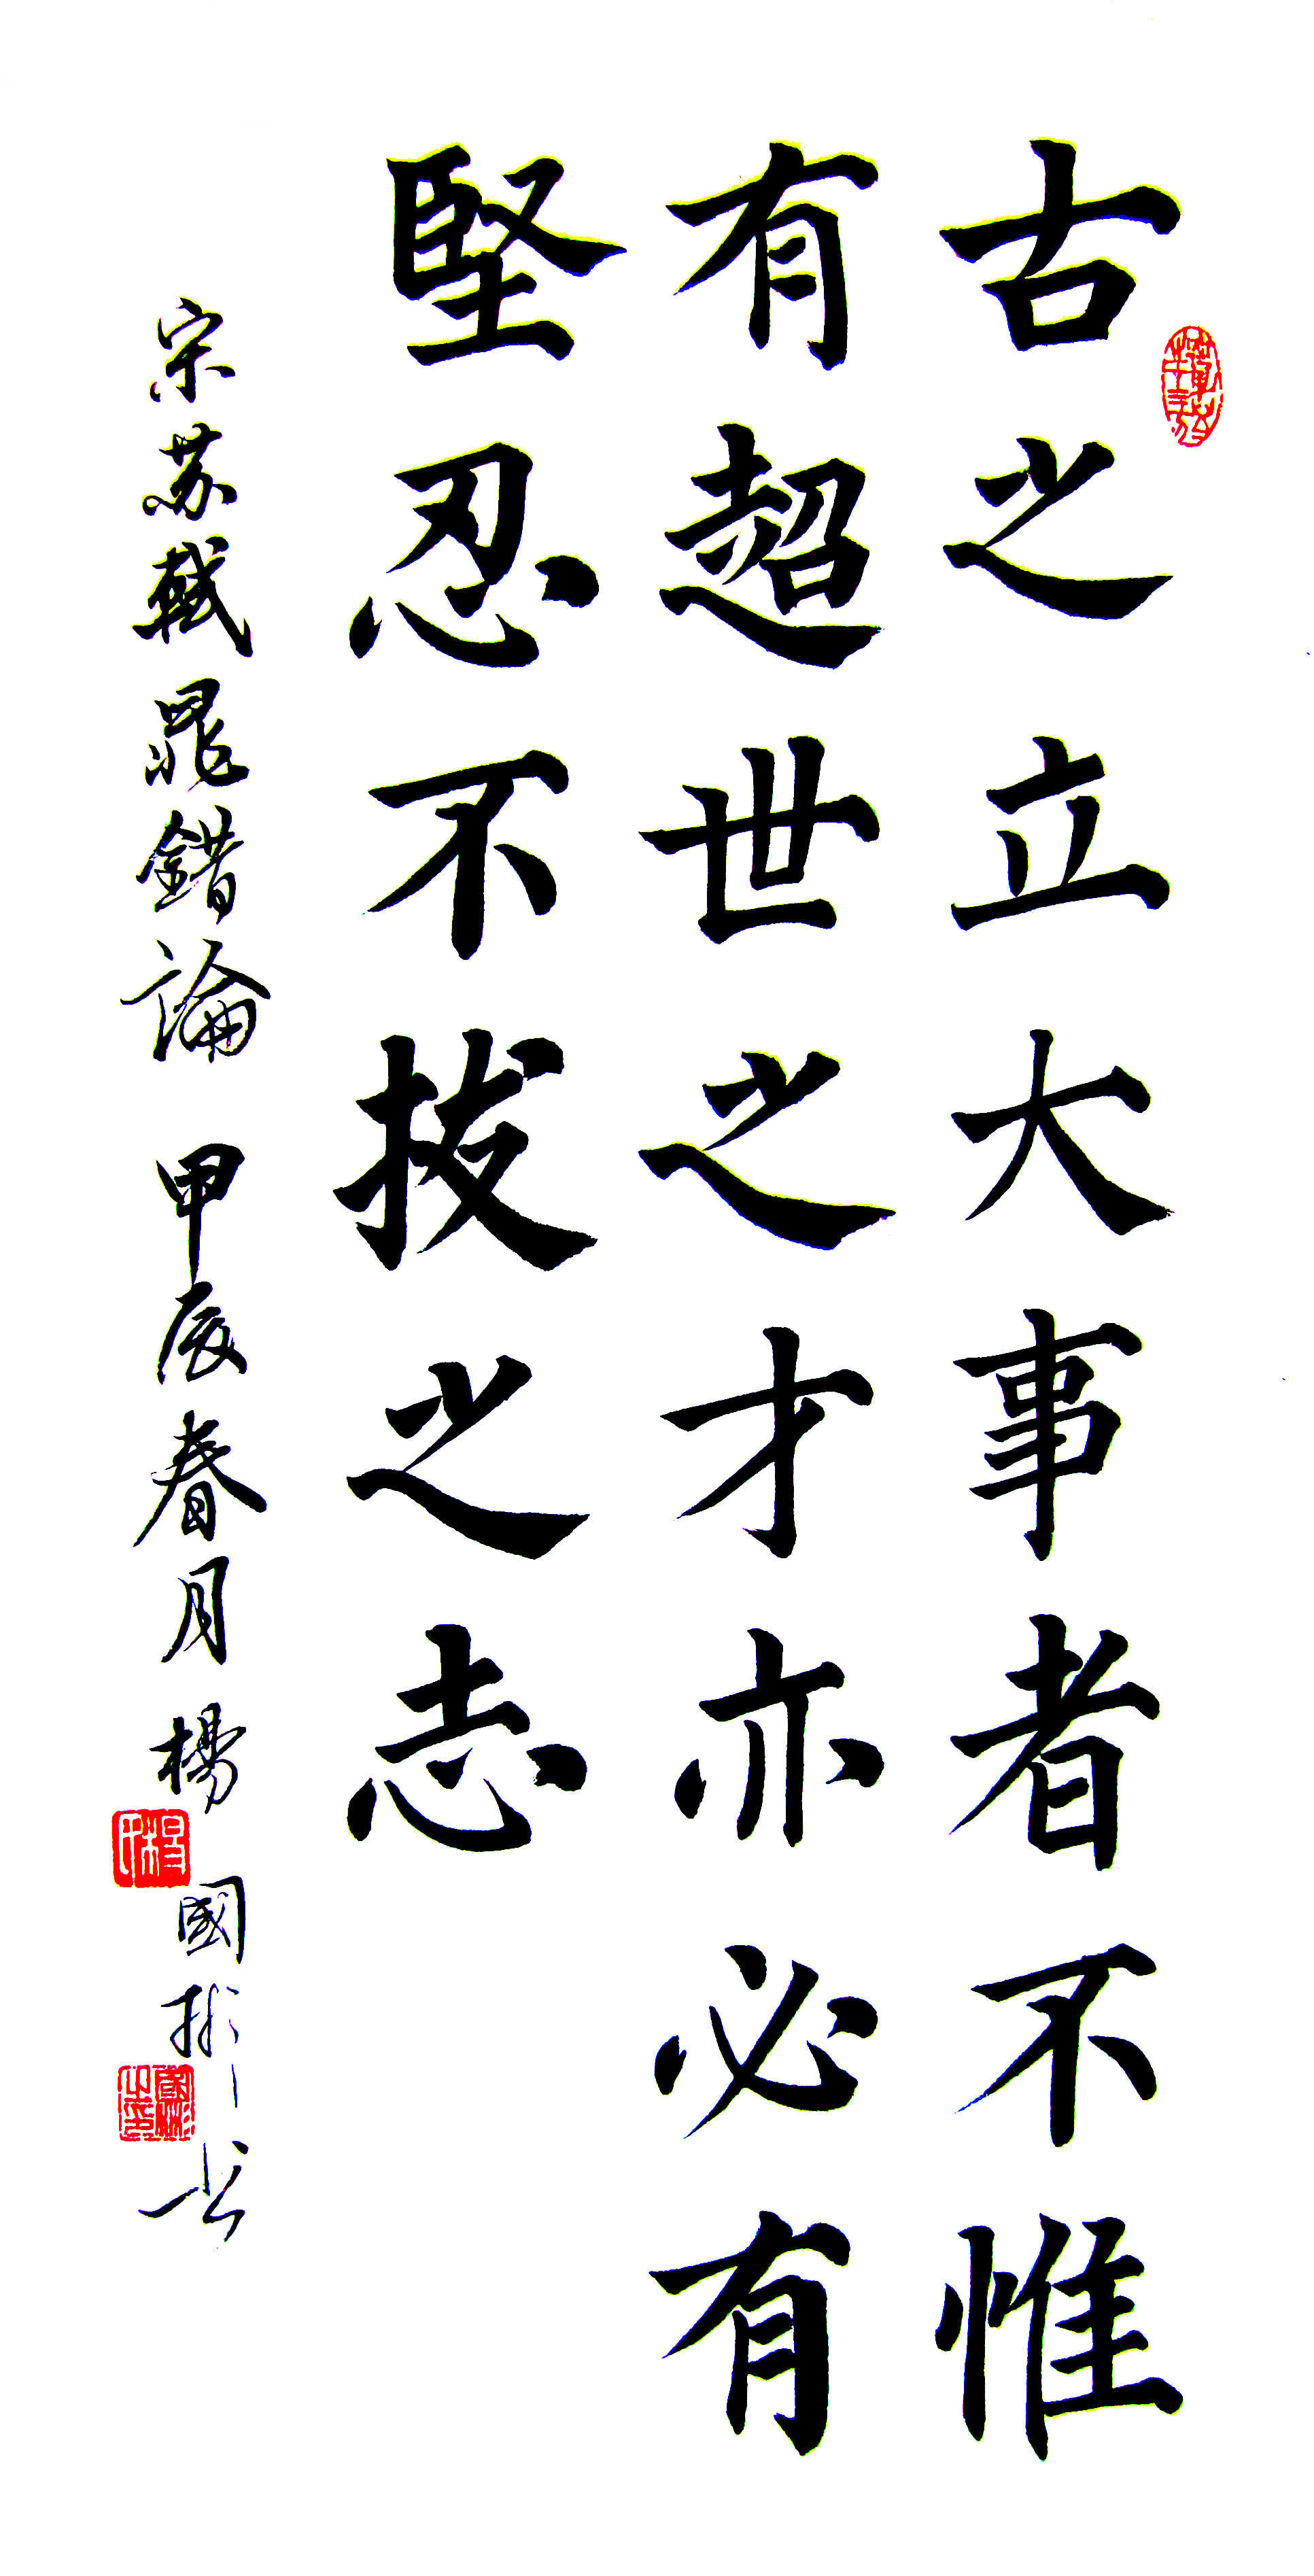 古之立大事者不惟
有超世之才亦必有
堅忍不拔之志
宋苏軾晁錯論 甲辰春月 楊國彬书